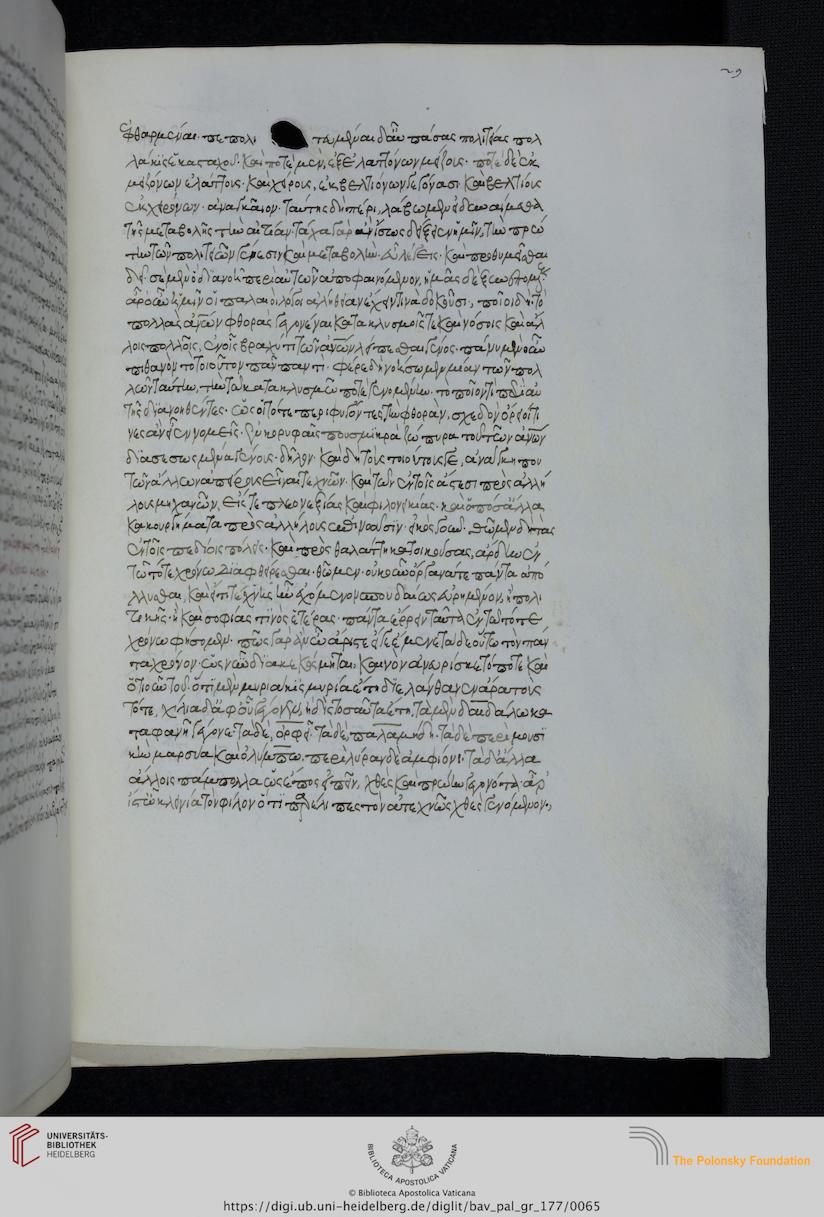 ἐφθαρμέναι· πεπολι τευμέναι δ' αὖ πάσας πολιτείας πολ
λάκις ἑκασταχοῦ· καὶ ποτὲ μὲν, ἐξ ἐλαττόνων μείζους· ποτὲ δὲ ἐκ
μειζόνων ἐλάττους· καὶ χείρους, ἐκ βελτιόνων γεγόνασι· καὶ βελτίους
ἐκ χειρόνων· ἀναγκαῖον· ταύτης δὴ πέρι, λάβωμεν εἰ δυναίμεθα
τῆς μεταβολῆς τὴν αἰτίαν· τάχα γὰρ ἂν ἴσως δείξειεν ἡμῖν, τὴν πρώ
την τῶν πολιτειῶν γένεσιν καὶ μεταβολήν· εὖ λέγεις· καὶ προθυμεῖσθαι
δεῖ· σὲ μὲν ὃ διανοῆ περὶ αὐτῶν ἀποφαινόμενον, ἡμᾶς δὲ ξυνεπομένους·
ἆρ' οὖν ὑμῖν οἱ παλαιοὶ λόγοι ἀλήθειαν ἔχειν τινὰ δοκοῦσι; ποῖοι δή· τὸ
πολλὰς ἀνων φθορὰς γεγονέναι κατακλυσμοῖς τε καὶ νόσοις καὶ ἄλ
λοις πολλοῖς, ἐν οἷς βραχύ τι τῶν ἀνων λείπεσθαι γένος· πάνυ μὲν οὖν
πιθανὸν τὸ τοιοῦτον πᾶν παντί· φέρε δὴ νοήσωμεν μίαν τῶν πολ
λῶν ταύτην, τὴν τῶ κατακλυσμῶ ποτὲ γενομένην· τὸ ποῖόν τι περὶ αὐ
τῆς διανοηθέντες· ὡς οἱ τότε περιφυγόντες τὴν φθορὰν, σχεδὸν ὄρειοί τι
νες ἂν εἶεν νομεῖς· ἐν κορυφαῖς που σμικρὰ ζώπυρα τοῦ τῶν ἀνων
διασεσωσμένα γένους· δῆλον· καὶ δὴ τοὺς τοιούτους γε, ἀνάγκη που
τῶν ἄλλων ἀπείρους εἶναι τεχνῶν· καὶ τῶν ἐν τοῖς ἄστεσι πρὸς ἀλλή
λους μηχανῶν, εἴς τε πλεονεξίας καὶ φιλονεικίας· καὶ ὁπόσα ἄλλα
κακουργήματα πρὸς ἀλλήλους ἐπινοοῦσϊν· εἰκὸς γοῦν· θῶμεν δὴ τὰς
ἐν τοῖς πεδίοις πόλεις· καὶ πρὸς θαλάττη κατοικούσας, ἄρδην ἐν
τῶ τότε χρόνω διαφθείρεσθαι· θῶμεν· οὐκοῦν ὄργανά τε πάντα ἀπό
λλυσθαι, καὶ εἴ τι τέχνης ἦν ἐχόμενον σπουδαίως εὑρημένον, ἢ πολι
τικῆς· ἢ καὶ σοφίας τινὸς ἑτέρας· πάντα ἔρρειν ταῦτα ἐν τῶ τότε
χρόνω φήσομεν· πῶς γὰρ ἂν ὦ ἄριστε εἴ γε ἔμενε τάδε οὕτω τὸν πάν
τα χρόνον· ὡς νῦν διακεκόσμηται, καινὸν ἀνευρίσκετό ποτε καὶ
ὁτιοῦν τοῦ· ὅτι μὲν μυριάκις μυρία ἔτη διελάνθανεν ἄρα τοὺς
τότε, χίλια δὲ ἀφ' οὗ γέγονεν, ἢ δὶς τοσαῦτα ἔτη, τὰ μὲν δαιδάλω κα
ταφανῆ γέγονε· τὰ δὲ, ὀρφεῖ· τὰ δὲ, παλαμήδη· τὰ δὲ περὶ μουσι
κὴν μαρσύα καὶ ὀλύμπω· περὶ λύραν δὲ ἀμφίονι· τὰ δ' ἄλλα
ἄλλοις πάμπολλα ὡς ἔπος εἰπεῖν, χθὲς καὶ πρώην γεγονότα· ἆρ'